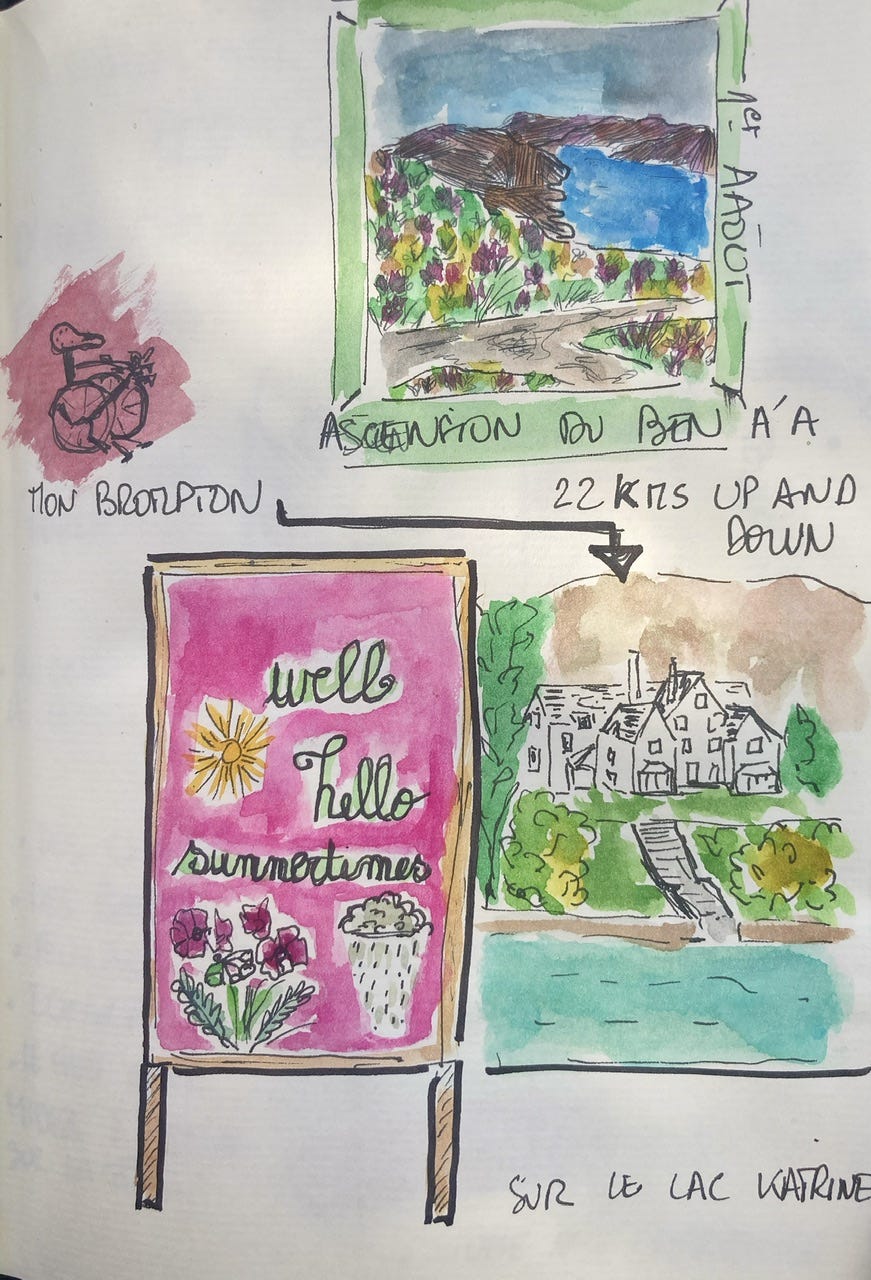 1er AAOÛT
ASCENTION DU BEN A'A
MON BROMPTON
22 KMS UP AND
DOWN
well
hello
summertimes
SUR LE LAC KATRINE